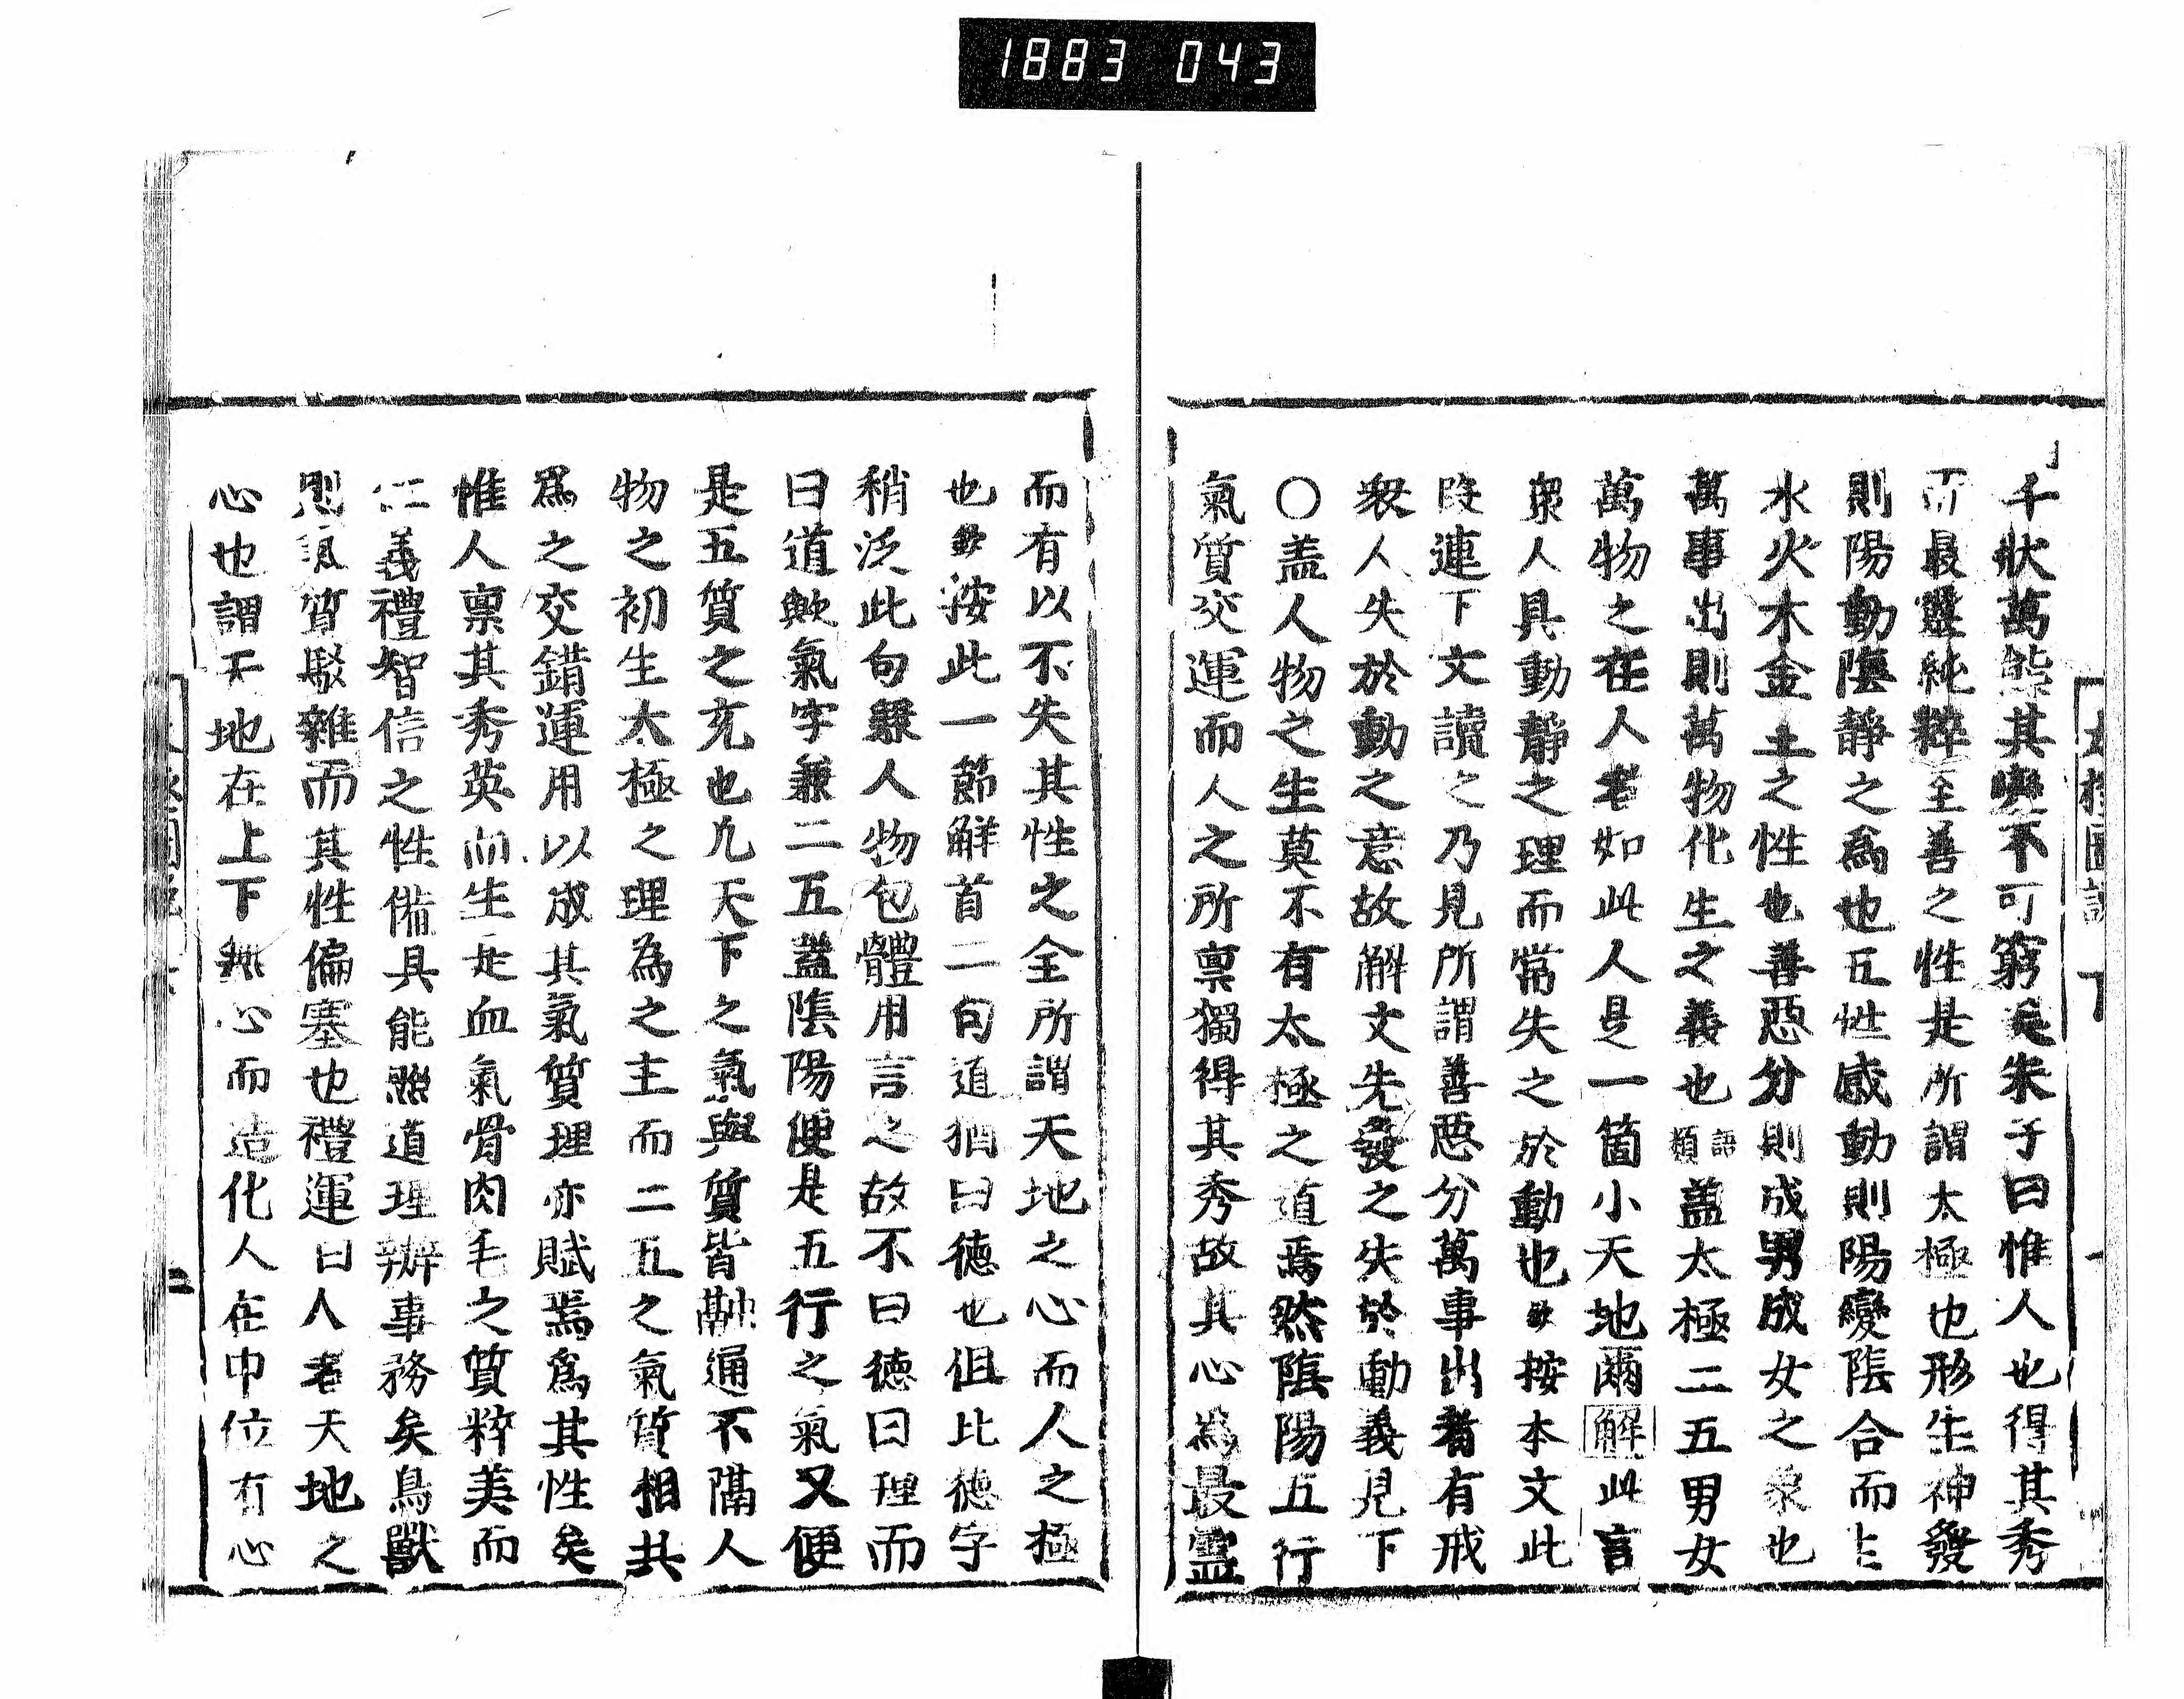 1883 043
千狀萬態其變不可窮矣朱子曰惟人也得其秀
而最靈純粹至善之性是所謂太極也形生神發
則陽動陰靜之爲也五性感動則陽變陰合而生
水火木金土之性也善惡分則成男成女之象也
萬事出則萬物化生之義也 語類 蓋太極二五男女
萬物之在人者如此人是一箇小天地爾 解 此言
衆人具動靜之理而常失之於動也 按本文此
段連下文讀之乃見所謂善惡分萬事出者有戒
衆人失於動之意故解文先發之失於動義見下
〇盖人物之生莫不有太極之道焉然陰陽五行
氣質交運而人之所禀獨得其秀故其心爲最靈
而有以不失其性之全所謂天地之心而人之極
也 按此一節解首二句道猶曰德也但比德字
稍泛此句緊人物包體用言之故不曰德曰理而
曰道歟氣字兼二五蓋陰陽便是五行之氣又便
是五質之充也凡天下之氣與質皆融通不隔人
物之初生太極之理為之主而二五之氣質相共
爲之交錯運用以成其氣質理亦賦焉爲其性矣
惟人禀其秀英而生是血氣骨肉毛之質粹美而
仁義禮智信之性備具能照道理辨事務矣鳥獸
則氣質駁雜而其性偏塞也禮運曰人者天地之
心也謂天地在上下無心而造化人在中位有心